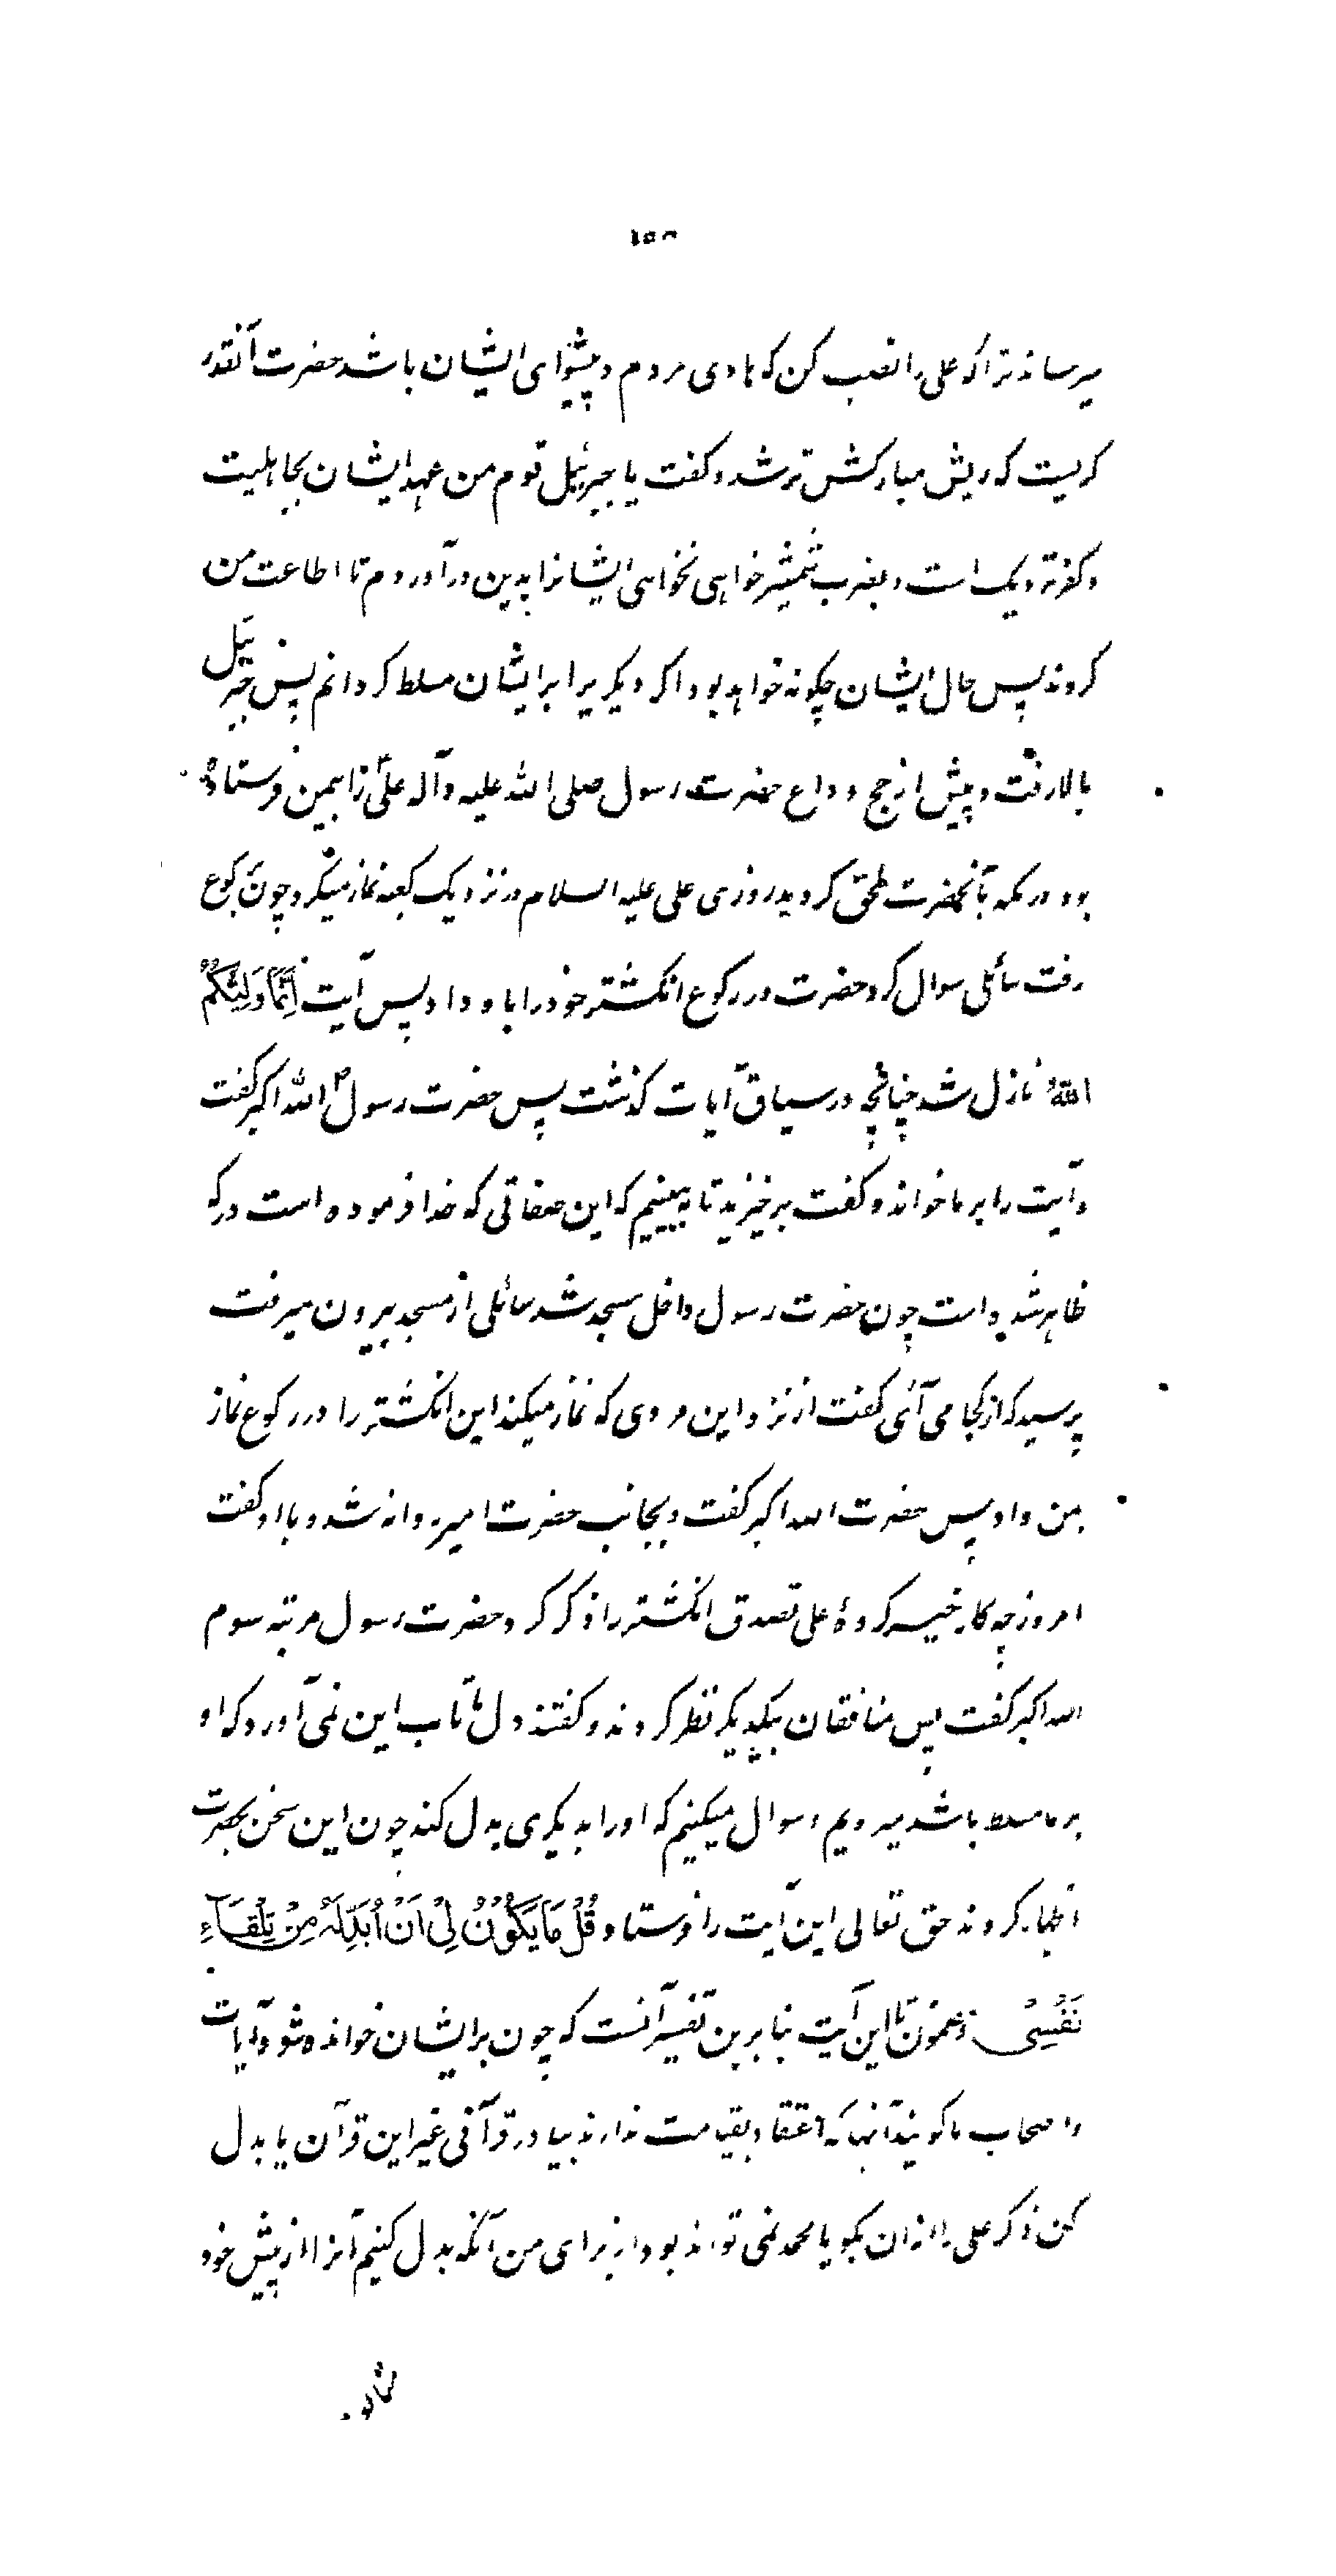 ۱۵۳
میرساند ترا که علی را نصب کن که هادی مردم و پیشوای ایشان باشد حضرت آنقدر
کریست که ریش مبارکش تر شد و کفت یا جبرئیل قوم من عهد ایشان بجاهلیت
و کفر نزدیک است و بضرب شمشیر خواهی نخواهی ایشانرا بدین در آوردم تا اطاعت من
کردند پس حال ایشان چکونه خواهد بود اکر دیکریرا بر ایشان مسلط کردانم پس جبرئیل
بالا رفت و پیش از حج وداع حضرت رسول صلی الله علیه وآله علی را بیمن فرستاده
بود در مکه بآنحضرت ملحق کردید روزی علی علیه السلام در نزدیک کعبه نماز میکرد چون برکوع
رفت سائلی سوال کرد حضرت در رکوع انکشتر خود را باو داد پس آیت اِنَّمَا وَلِیُّکُمُ
اللهُ نازل شد چنانچه در سیاق آیات کذشت پس حضرت رسول ص الله اکبر کفت
و آیت را بر ما خواند و کفت برخیزید تا ببینیم که این صفاتی که خدا فرموده است در که
ظاهر شده است چون حضرت رسول داخل مسجد شد سائلی از مسجد بیرون میرفت
پرسید که از کجا می آئی کفت از نزد این مردی که نماز میکند این انکشتر را در رکوع نماز
بمن داد پس حضرت الله اکبر کفت و بجانب حضرت امیر روانه شد و با او کفت
امروز چه کار خیر کردهٔ علی تصدق انکشتر را ذکر کرد حضرت رسول مرتبه سوم
الله اکبر کفت پس منافقان بیکدیکر نظر کردند و کفتند دل ما تاب این نمی آورد که او
بر ما مسلط باشد میرویم و سوال میکنیم که او را بدیکری بدل کند چون این سخن بحضرت
اظهار کردند حق تعالی این آیت را فرستاد قُلْ مَا یَکُوْنُ لِیْ اَنْ اُبَدِّلَهُ مِنْ تِلْقَآءِ
نَفْسِیْ و مضمون تا این آیت بنا برین تفسیر آنست که چون بر ایشان خوانده شود آیات
واضحات ما کویند آنها که اعتقاد بقیامت ندارند بیاور قرآنی غیر این قرآن یا بدل
کن ذکر علی را از ان بکو یا محمد نمی تواند بود از برای من آنکه بدل کنیم آنرا از پیش خود